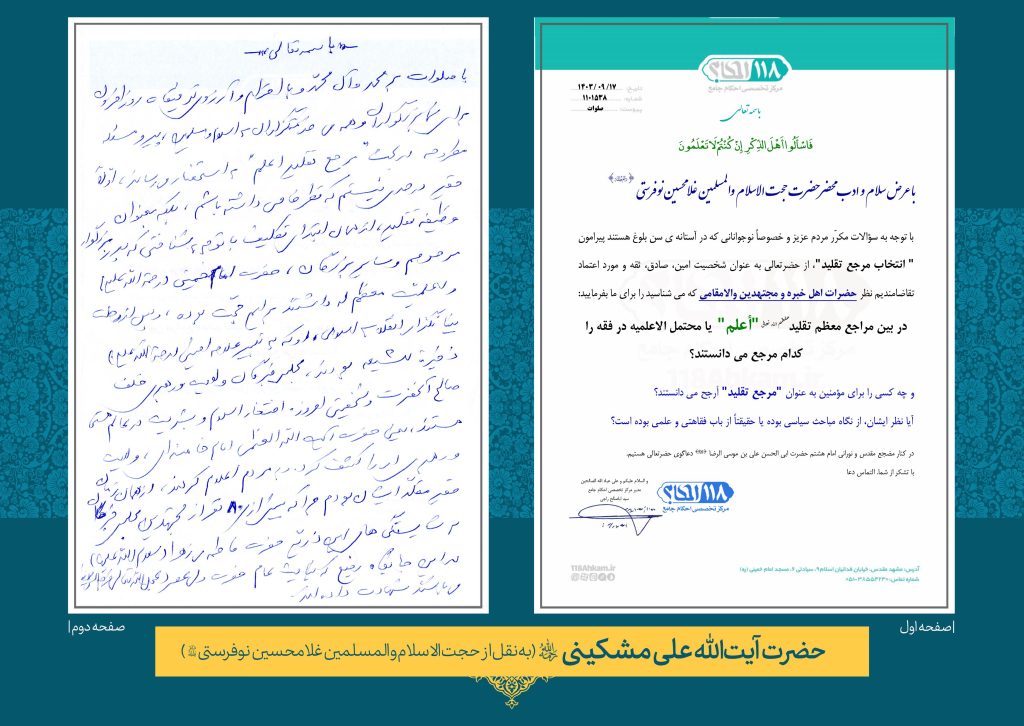 ۱۱۸ احکام
مرکز تخصصی احکام جامع
تاریخ: ۱۴۰۳/۰۹/۱۷
شماره: ۱۱۰۱۵۳۸
پیوست: صلوات
باسمه تعالی
فَاسْأَلُوا أَهْلَ الذِّكْرِ إِنْ كُنْتُمْ لَا تَعْلَمُونَ
با عرض سلام و ادب محضر حضرت حجت الاسلام والمسلمین غلامحسین نوفرستی
با توجه به سؤالات مکرّر مردم عزیز و خصوصاً نوجوانانی که در آستانه ی سن بلوغ هستند پیرامون
" انتخاب مرجع تقلید"، از حضرتعالی به عنوان شخصیت امین، صادق، ثقه و مورد اعتماد
تقاضامندیم نظر حضرات اهل خبره و مجتهدین والامقامی که می شناسید را برای ما بفرمایید:
در بین مراجع معظم تقلید "أعلم" یا محتمل الاعلمیه در فقه را
کدام مرجع می دانستند؟
و چه کسی را برای مؤمنین به عنوان "مرجع تقلید" أرجح می دانستند؟
آیا نظر ایشان، از نگاه مباحث سیاسی بوده یا حقیقتاً از باب فقاهتی و علمی بوده است؟
در کنار مضجع مقدس و نورانی امام هشتم حضرت ابی الحسن علی بن موسی الرضا دعاگوی حضرتعالی هستیم.
با تشکر از شما. التماس دعا
و السلام علیکم و علی عباد الله الصالحین
مدیر مرکز تخصصی احکام جامع
۱۱۸ احکام
مرکز تخصصی احکام جامع
118Ahkam.ir
آدرس: مشهد مقدس، خیابان فدائیان اسلام۹، سیادتی ۶، مسجد امام خمینی (ره)
شماره تماس: ۳۸۵۵۴۲۳۰-۰۵۱
|صفحه اول
باسمه تعالی
با صلوات بر محمد و آل محمد و با احترام و آرزوی توفیقات روز افزون
برای شما بزرگواران و همه ی خدمتگزاران به اسلام و مسلمین، پیرو مسئله
مطروحه در بحث "مرجع تقلید اعلم" به استحضار می رساند، اولاً
حقیر در حدی نیستم که نظر خاصی داشته باشم، بلکه بعنوان
وظیفه تقلید، از همان ابتدای تکلیف با توجه به شناختی که پدر بزرگوار
مرحومم و سایر بزرگان، حضرت امام خمینی (رحمة الله علیه)
و اعلمیت معظم له داشتند برایم حجت بوده، و پس از رحلت
بنیانگذار انقلاب اسلامی، او که به تعبیر علامه امینی (رحمة الله علیه)
ذخیره شیعه بودند، مجلس خبرگان ولایت و رهبری خلف
صالح آنحضرت و شخصیتی که امروزه افتخار اسلام و بشریت در عالم
هستند، یعنی حضرت آیت الله العظمی امام خامنه ای، ولایت
و رهبری او را کشف کرده و به مردم اعلام کردند، از همان زمان
حقیر مقلد ایشان بودم چرا که بیش از ۸۰ نفر از مجتهدین مجلس خبرگان
به شایستگی های این ذریه حضرت فاطمه زهرا (سلام الله علیها)
در این جایگاه رفیع که نیابت عام حضرت ولی عصر
می باشد شهادت داده اند.
صفحه دوم|
حضرت آیت الله علی مشکینی (به نقل از حجت الاسلام والمسلمین غلامحسین نوفرستی)